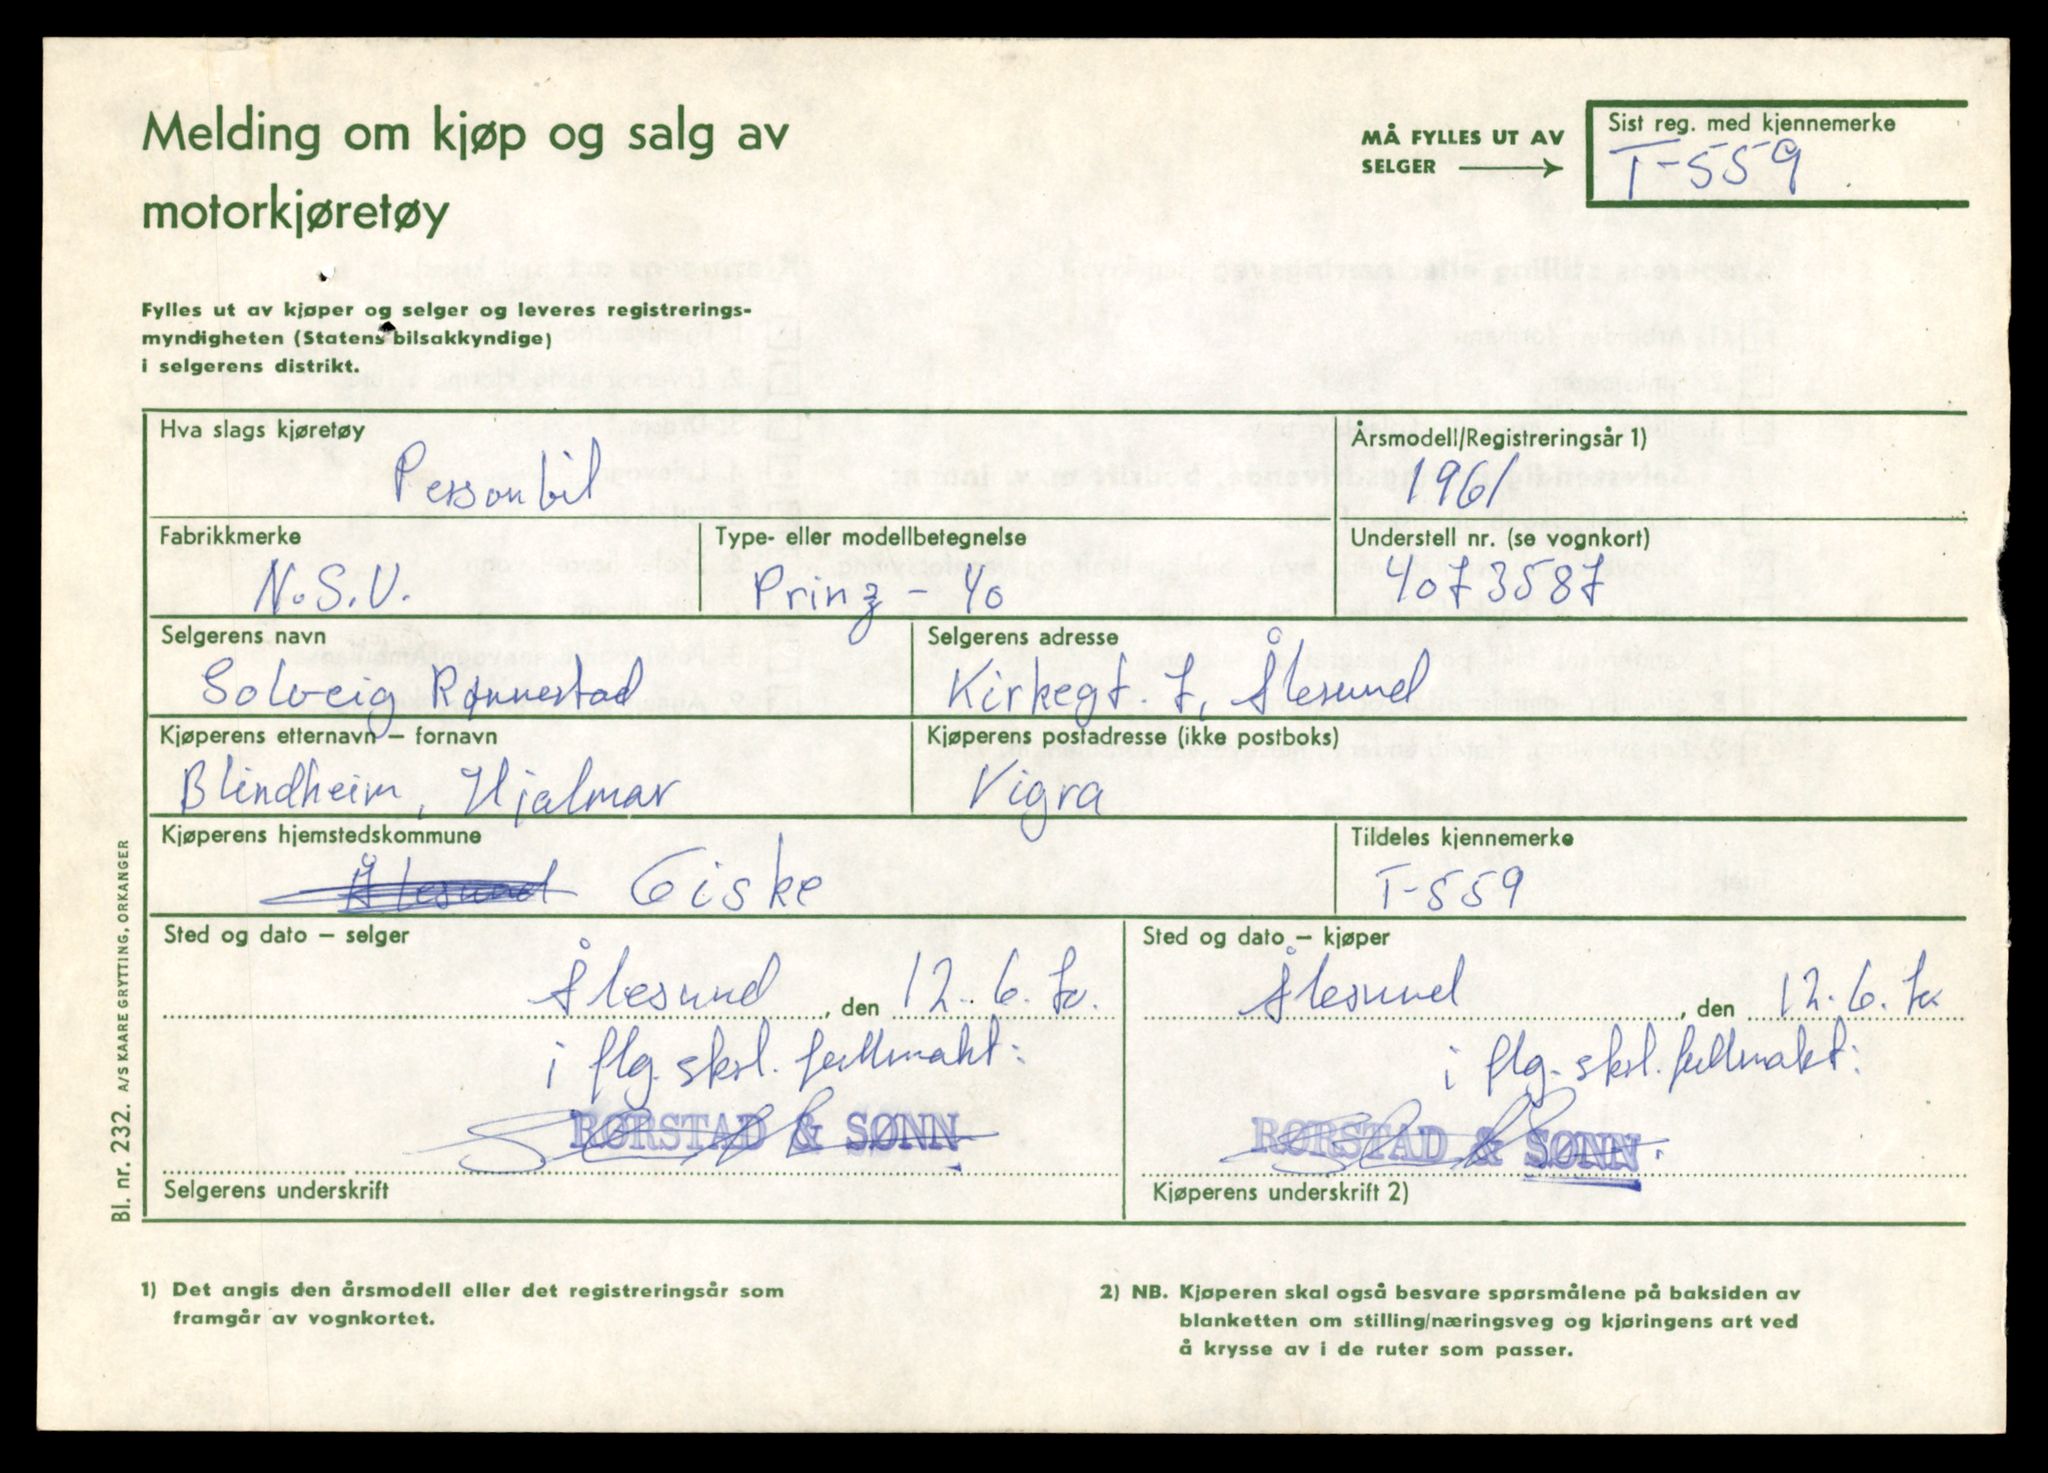 Melding om kjøp og salg av
motorkjøretøy
MÅ FYLLES UT AV
SELGER
Sist reg. med kjennemerke
T-559
Fylles ut av kjøper og selger og leveres registrerings-
myndigheten (Statens bilsakkyndige)
i selgerens distrikt.
Hva slags kjøretøy
Personbil
Årsmodell/Registreringsår 1)
1961
Fabrikkmerke
N.S.U.
Type- eller modellbetegnelse
Prinz - 40
Understell nr. (se vognkort)
4073587
Selgerens navn
Solveig Rønnestad
Selgerens adresse
Kirkegt. 7, Ålesund
Kjøperens etternavn – fornavn
Blindheim, Hjalmar
Kjøperens postadresse (ikke postboks)
Vigra
Kjøperens hjemstedskommune
Ålesund Giske
Tildeles kjennemerke
T-559
Sted og dato – selger
Ålesund, den 12.6.70.
i flg. skrl. fullmakt:
RØRSTAD & SØNN
Selgerens underskrift
Sted og dato – kjøper
Ålesund, den 12.6.70
i flg. skrl. fullmakt:
RØRSTAD & SØNN
Kjøperens underskrift 2)
Bl. nr. 232. A/S KAARE GRYTTING, ORKANGER
1) Det angis den årsmodell eller det registreringsår som
framgår av vognkortet.
2) NB. Kjøperen skal også besvare spørsmålene på baksiden av
blanketten om stilling/næringsveg og kjøringens art ved
å krysse av i de ruter som passer.